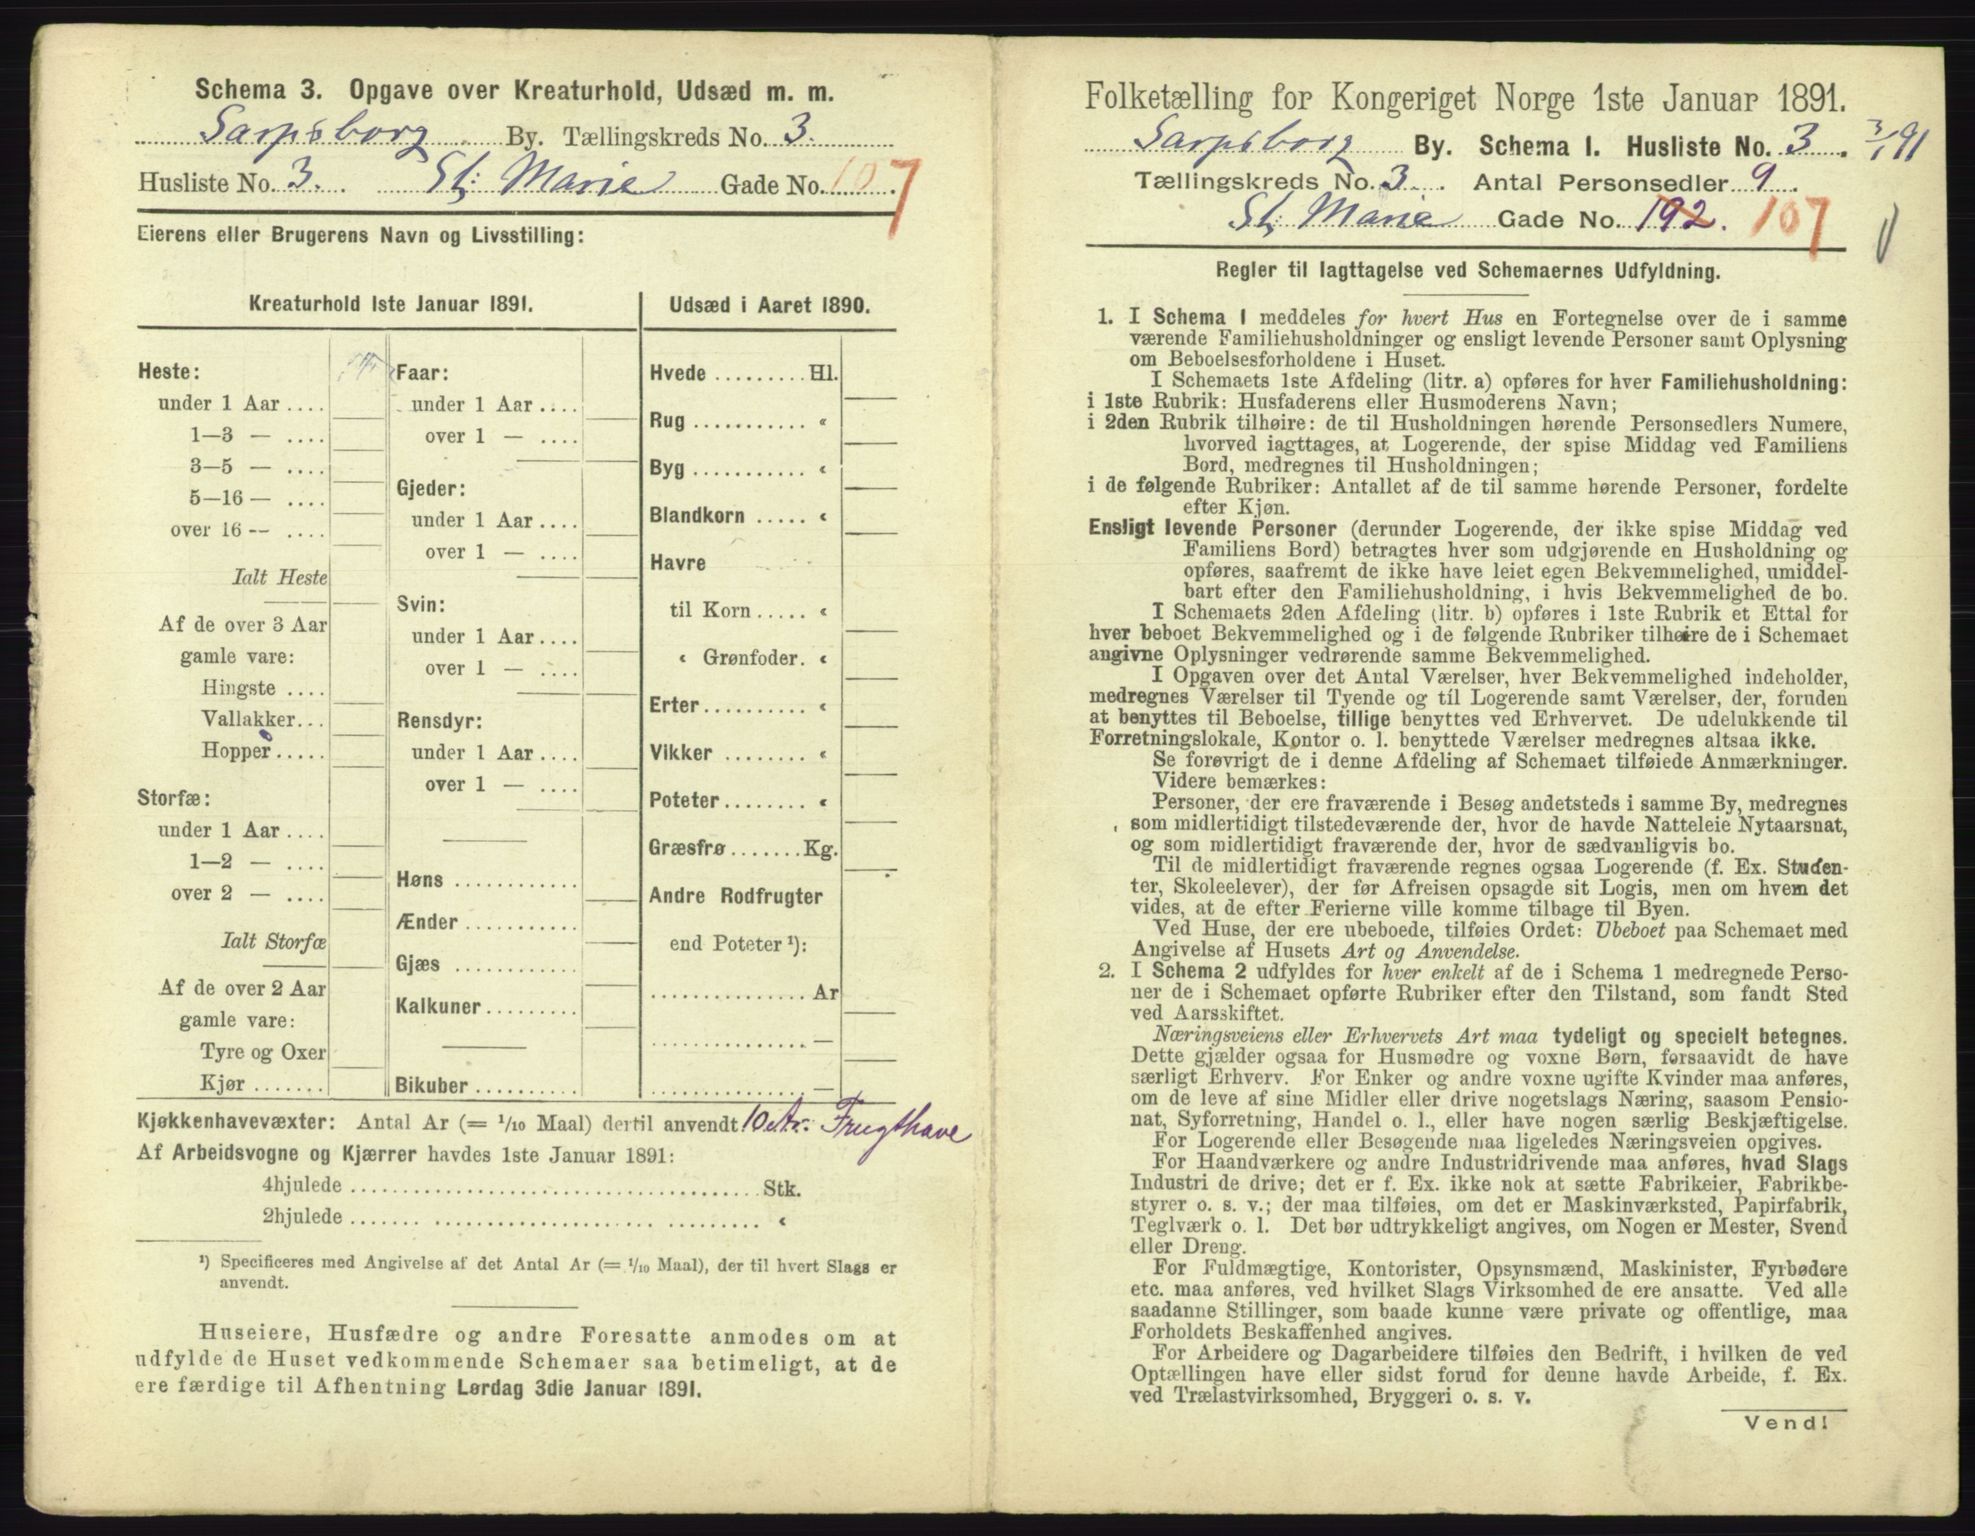 Schema 3. Opgave over Kreaturhold, Udsæd m. m.
Sarpsborg By. Tællingskreds No. 3.
Husliste No. 3. St: Marie Gade No. 107.
Eierens eller Brugerens Navn og Livsstilling:
Kreaturhold 1ste Januar 1891.
Heste:
under 1 Aar ....
1—3 — ....
3—5 — ....
5—16 — ....
over 16 -- ....
Ialt Heste
Af de over 3 Aar
gamle vare:
Hingste ....
Vallakker...
Hopper.....
Storfæ:
under 1 Aar ....
1—2 — ....
over 2 — ....
Ialt Storfæ
Af de over 2 Aar
gamle vare:
Tyre og Oxer
Kjør .......
Faar:
under 1 Aar ....
over 1 — ....
Gjeder:
under 1 Aar ....
over 1 — ....
Svin:
under 1 Aar ....
over 1 — ....
Rensdyr:
under 1 Aar ....
over 1 — ....
Høns ............
Ænder ...........
Gjæs ............
Kalkuner .........
Bikuber ..........
Udsæd i Aaret 1890.
Hvede .........Hl.
Rug ........... «
Byg ........... «
Blandkorn ..... «
Havre
til Korn..... «
« Grønfoder. «
Erter.......... «
Vikker ........ «
Poteter........ «
Græsfrø.......Kg.
Andre Rodfrugter
end Poteter ¹):
...............Ar
............... —
............... —
Kjøkkenhavevæxter: Antal Ar (= 1/10 Maal) dertil anvendt 10 Ar. Frugthave
Af Arbeidsvogne og Kjærrer havdes 1ste Januar 1891:
4hjulede ........................................Stk.
2hjulede ........................................ «
¹) Specificeres med Angivelse af det Antal Ar (= 1/10 Maal), der til hvert Slags er
anvendt.
Huseiere, Husfædre og andre Foresatte anmodes om at
udfylde de Huset vedkommende Schemaer saa betimeligt, at de
ere færdige til Afhentning Lørdag 3die Januar 1891.
Folketælling for Kongeriget Norge 1ste Januar 1891.
Sarpsborg By. Schema I. Husliste No. 3. 3/1 91
Tællingskreds No. 3. Antal Personsedler 9.
St: Marie Gade No. 192. 107
Regler til Iagttagelse ved Schemaernes Udfyldning.
1. I Schema I meddeles for hvert Hus en Fortegnelse over de i samme
værende Familiehusholdninger og ensligt levende Personer samt Oplysning
om Beboelsesforholdene i Huset.
I Schemaets 1ste Afdeling (litr. a) opføres for hver Familiehusholdning:
i 1ste Rubrik: Husfaderens eller Husmoderens Navn;
i 2den Rubrik tilhøire: de til Husholdningen hørende Personsedlers Numere,
hvorved iagttages, at Logerende, der spise Middag ved Familiens
Bord, medregnes til Husholdningen;
i de følgende Rubriker: Antallet af de til samme hørende Personer, fordelte
efter Kjøn.
Ensligt levende Personer (derunder Logerende, der ikke spise Middag ved
Familiens Bord) betragtes hver som udgjørende en Husholdning og
opføres, saafremt de ikke have leiet egen Bekvemmelighed, umiddel-
bart efter den Familiehusholdning, i hvis Bekvemmelighed de bo.
I Schemaets 2den Afdeling (litr. b) opføres i 1ste Rubrik et Ettal for
hver beboet Bekvemmelighed og i de følgende Rubriker tilhøire de i Schemaet
angivne Oplysninger vedrørende samme Bekvemmelighed.
I Opgaven over det Antal Værelser, hver Bekvemmelighed indeholder,
medregnes Værelser til Tyende og til Logerende samt Værelser, der, foruden
at benyttes til Beboelse, tillige benyttes ved Erhvervet. De udelukkende til
Forretningslokale, Kontor o. l. benyttede Værelser medregnes altsaa ikke.
Se forøvrigt de i denne Afdeling af Schemaet tilføiede Anmærkninger.
Videre bemærkes:
Personer, der ere fraværende i Besøg andetsteds i samme By, medregnes
som midlertidigt tilstedeværende der, hvor de havde Natteleie Nytaarsnat,
og som midlertidigt fraværende der, hvor de sædvanligvis bo.
Til de midlertidigt fraværende regnes ogsaa Logerende (f. Ex. Studen-
ter, Skoleelever), der før Afreisen opsagde sit Logis, men om hvem det
vides, at de efter Ferierne ville komme tilbage til Byen.
Ved Huse, der ere ubeboede, tilføies Ordet: Ubeboet paa Schemaet med
Angivelse af Husets Art og Anvendelse.
2. I Schema 2 udfyldes for hver enkelt af de i Schema 1 medregnede Perso-
ner de i Schemaet opførte Rubriker efter den Tilstand, som fandt Sted
ved Aarsskiftet.
Næringsveiens eller Erhvervets Art maa tydeligt og specielt betegnes.
Dette gjælder ogsaa for Husmødre og voxne Børn, forsaavidt de have
særligt Erhverv. For Enker og andre voxne ugifte Kvinder maa anføres,
om de leve af sine Midler eller drive nogetslags Næring, saasom Pensio-
nat, Syforretning, Handel o. l., eller have nogen særlig Beskjæftigelse.
For Logerende eller Besøgende maa ligeledes Næringsveien opgives.
For Haandværkere og andre Industridrivende maa anføres, hvad Slags
Industri de drive; det er f. Ex. ikke nok at sætte Fabrikeier, Fabrikbe-
styrer o. s. v.; der maa tilføies, om det er Maskinværksted, Papirfabrik,
Teglværk o. l. Det bør udtrykkeligt angives, om Nogen er Mester, Svend
eller Dreng.
For Fuldmægtige, Kontorister, Opsynsmænd, Maskinister, Fyrbødere
etc. maa anføres, ved hvilket Slags Virksomhed de ere ansatte. Ved alle
saadanne Stillinger, som baade kunne være private og offentlige, maa
Forholdets Beskaffenhed angives.
For Arbeidere og Dagarbeidere tilføies den Bedrift, i hvilken de ved
Optællingen have eller sidst forud for denne havde Arbeide, f. Ex.
ved Trælastvirksomhed, Bryggeri o. s. v.
Vend!